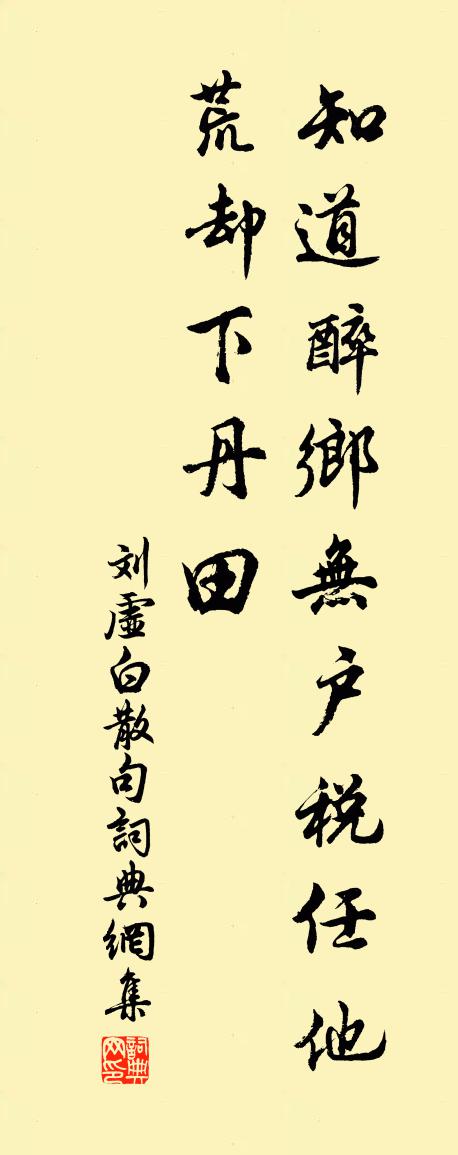 知道醉鄉無户税任他
荒却下丹田
刘虛白散句詞典網集
詞典网印